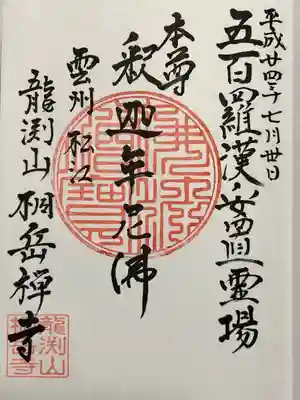 平成廿四年七月卅日
五百羅漢安置霊場
本尊
釈迦牟尼佛
雲州松江
龍渕山桐岳禅寺
龍渕山
桐岳寺